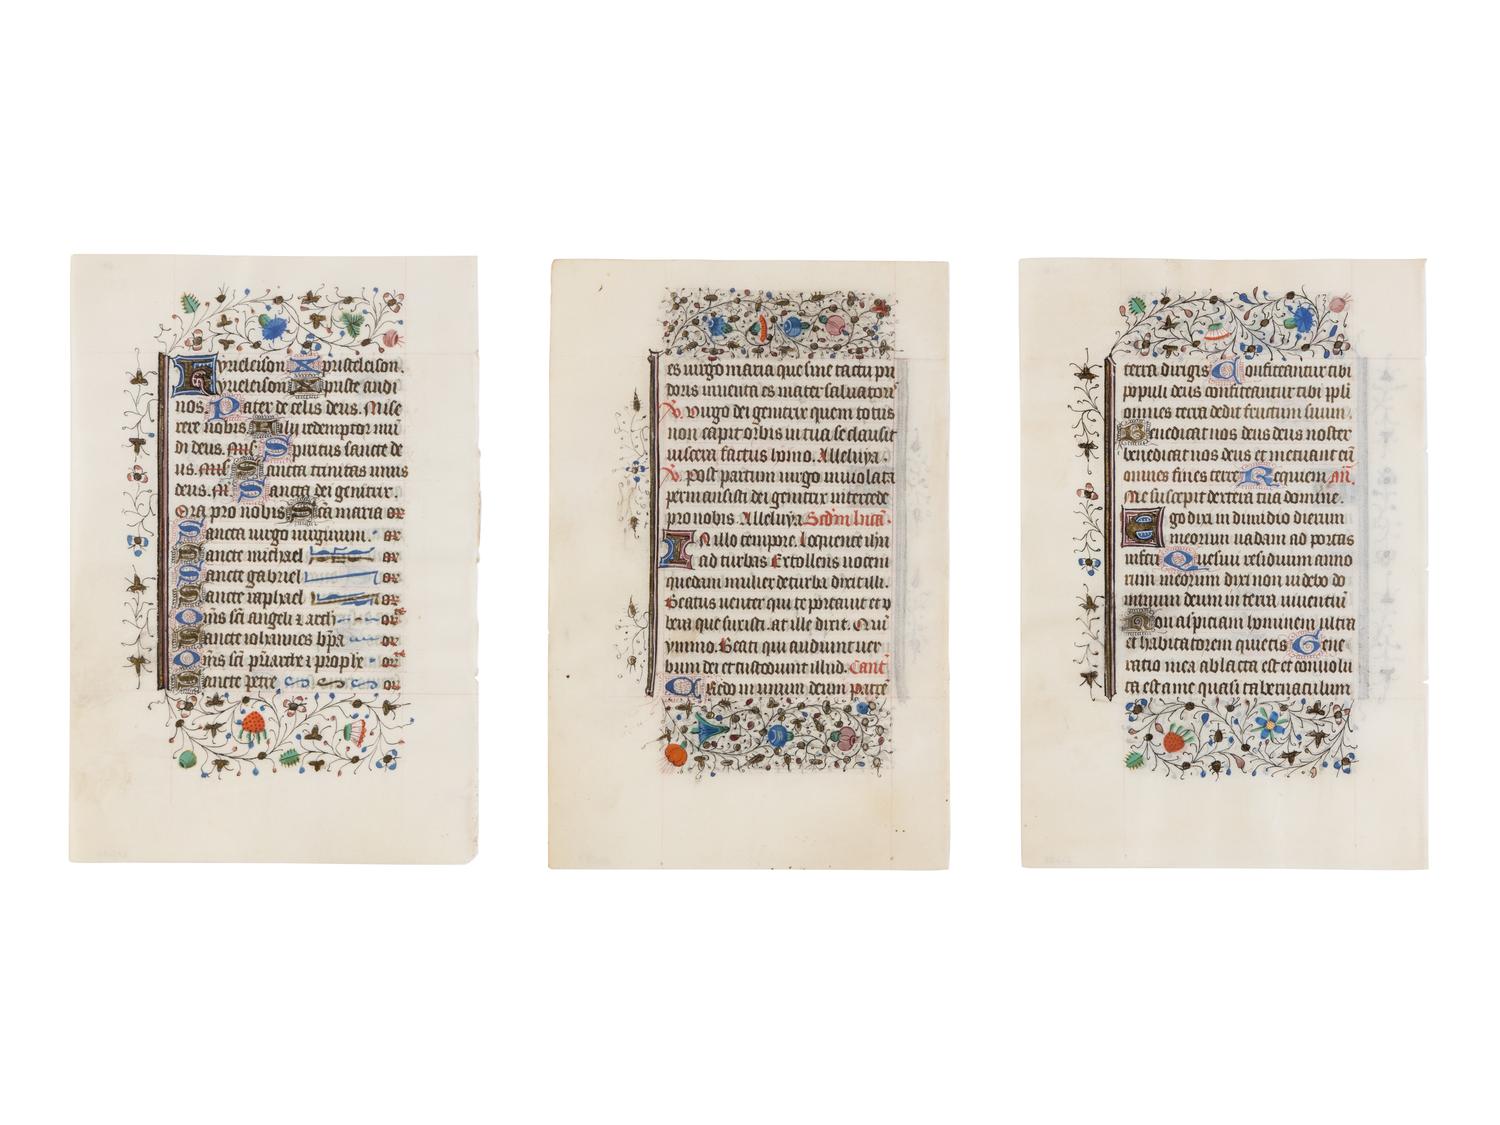 Kyrieleison Xpristeleison.
Kyrieleison Xpiste audi
nos. Pater de celis deus. Mise
rere nobis Fili redemptor mu
di deus. mis Spiritus sancte de
us. mis Sancta trinitas unus
deus. M Sancta dei genitrix.
Ora pro nobis Sca maria or
Sancta virgo virginum. or
Sancte michael or
Sancte gabriel or
Sancte raphael or
Oms sci angeli et arch or
Sancte iohannes bpa or
Oms sci priarche et prophe or
Sancte petre or
es virgo maria que sine tactu pu
doris inventa es mater salvatoris
V. Virgo dei genitrix quem totus
non capit orbis in tua se clausit
viscera factus homo. Alleluya.
V. Post partum virgo inviolata
permansisti dei genitrix intercede
pro nobis. Alleluya. Scdm lucam.
In illo tempore. Loquente ihu
ad turbas Extollens vocem
quedam mulier de turba dixit illi.
Beatus venter qui te portavit et u
bera que suxisti. at ille dixit. Quī
ymmo. Beati qui audiunt ver
bum dei et custodiunt illud.
Credo in unum deum patrē
terra dirigis Confiteantur tibi
populi deus confiteantur tibi ppli
omnes terra dedit fructum suum.
Benedicat nos deus deus noster
benedicat nos deus et metuant eū
omnes fines terre Requiem Añ.
Me suscepit dextera tua domine.
Ego dixi in dimidio dierum
meorum vadam ad portas
inferi Quesivi residuum anno
rum meorum dixi non videbo do
minum deum in terra viventiū
Non aspiciam hominem ultra
et habitatorem quietis Gene
ratio mea ablata est et convolu
ta est a me quasi tabernaculum